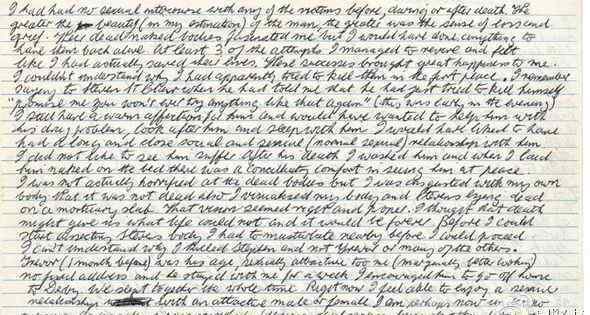 I had had no sexual intercourse with any of the victims before, during, or after death. The
greater the beauty (in my estimation) of the man, the greater was the sense of loss and
grief. Their dead naked bodies fascinated me but I would have done anything to
have them back alive. At least 3 of the attempts I managed to revive and felt
like I had actually saved their lives. These successes brought great happiness to me.
I couldn't understand why I had apparently tried to kill them in the first place. I remember
saying to Steven Sinclair when he had told me that he had just tried to kill himself
"promise me you won't ever try anything like that again" (this was early in the evening)
I still have a warm affection for him and would have wanted to help him with
his drug problem, look after him and sleep with him. I would have liked to have
had a long and close social and sexual (normal sexual) relationship with him
I did not like to see him suffer. After his death I washed him and when I laid
him naked on the bed there was a comfort in seeing him at peace.
I was not actually horrified at the dead bodies but I was disgusted with my own
body that it was not dead also. I visualised my body and Stevens lying dead
on a mortuary slab. That vision seemed right and proper. I thought that death
might give us what life could not and it would be forever. Before I could
start dissecting Steven's body I had to masturbate nearby before I could proceed
I can't understand why I killed Stephen and not Trevor or many of the others.
Trevor (1 month before) was his age, sexually attractive too me (marginally better looking)
no fixed address and he stayed with me for a week. I encouraged him to go off home
to Derby. We slept together the whole time. Right now I feel able to enjoy a sexual
relationship with an attractive male or female. I am perhaps now no